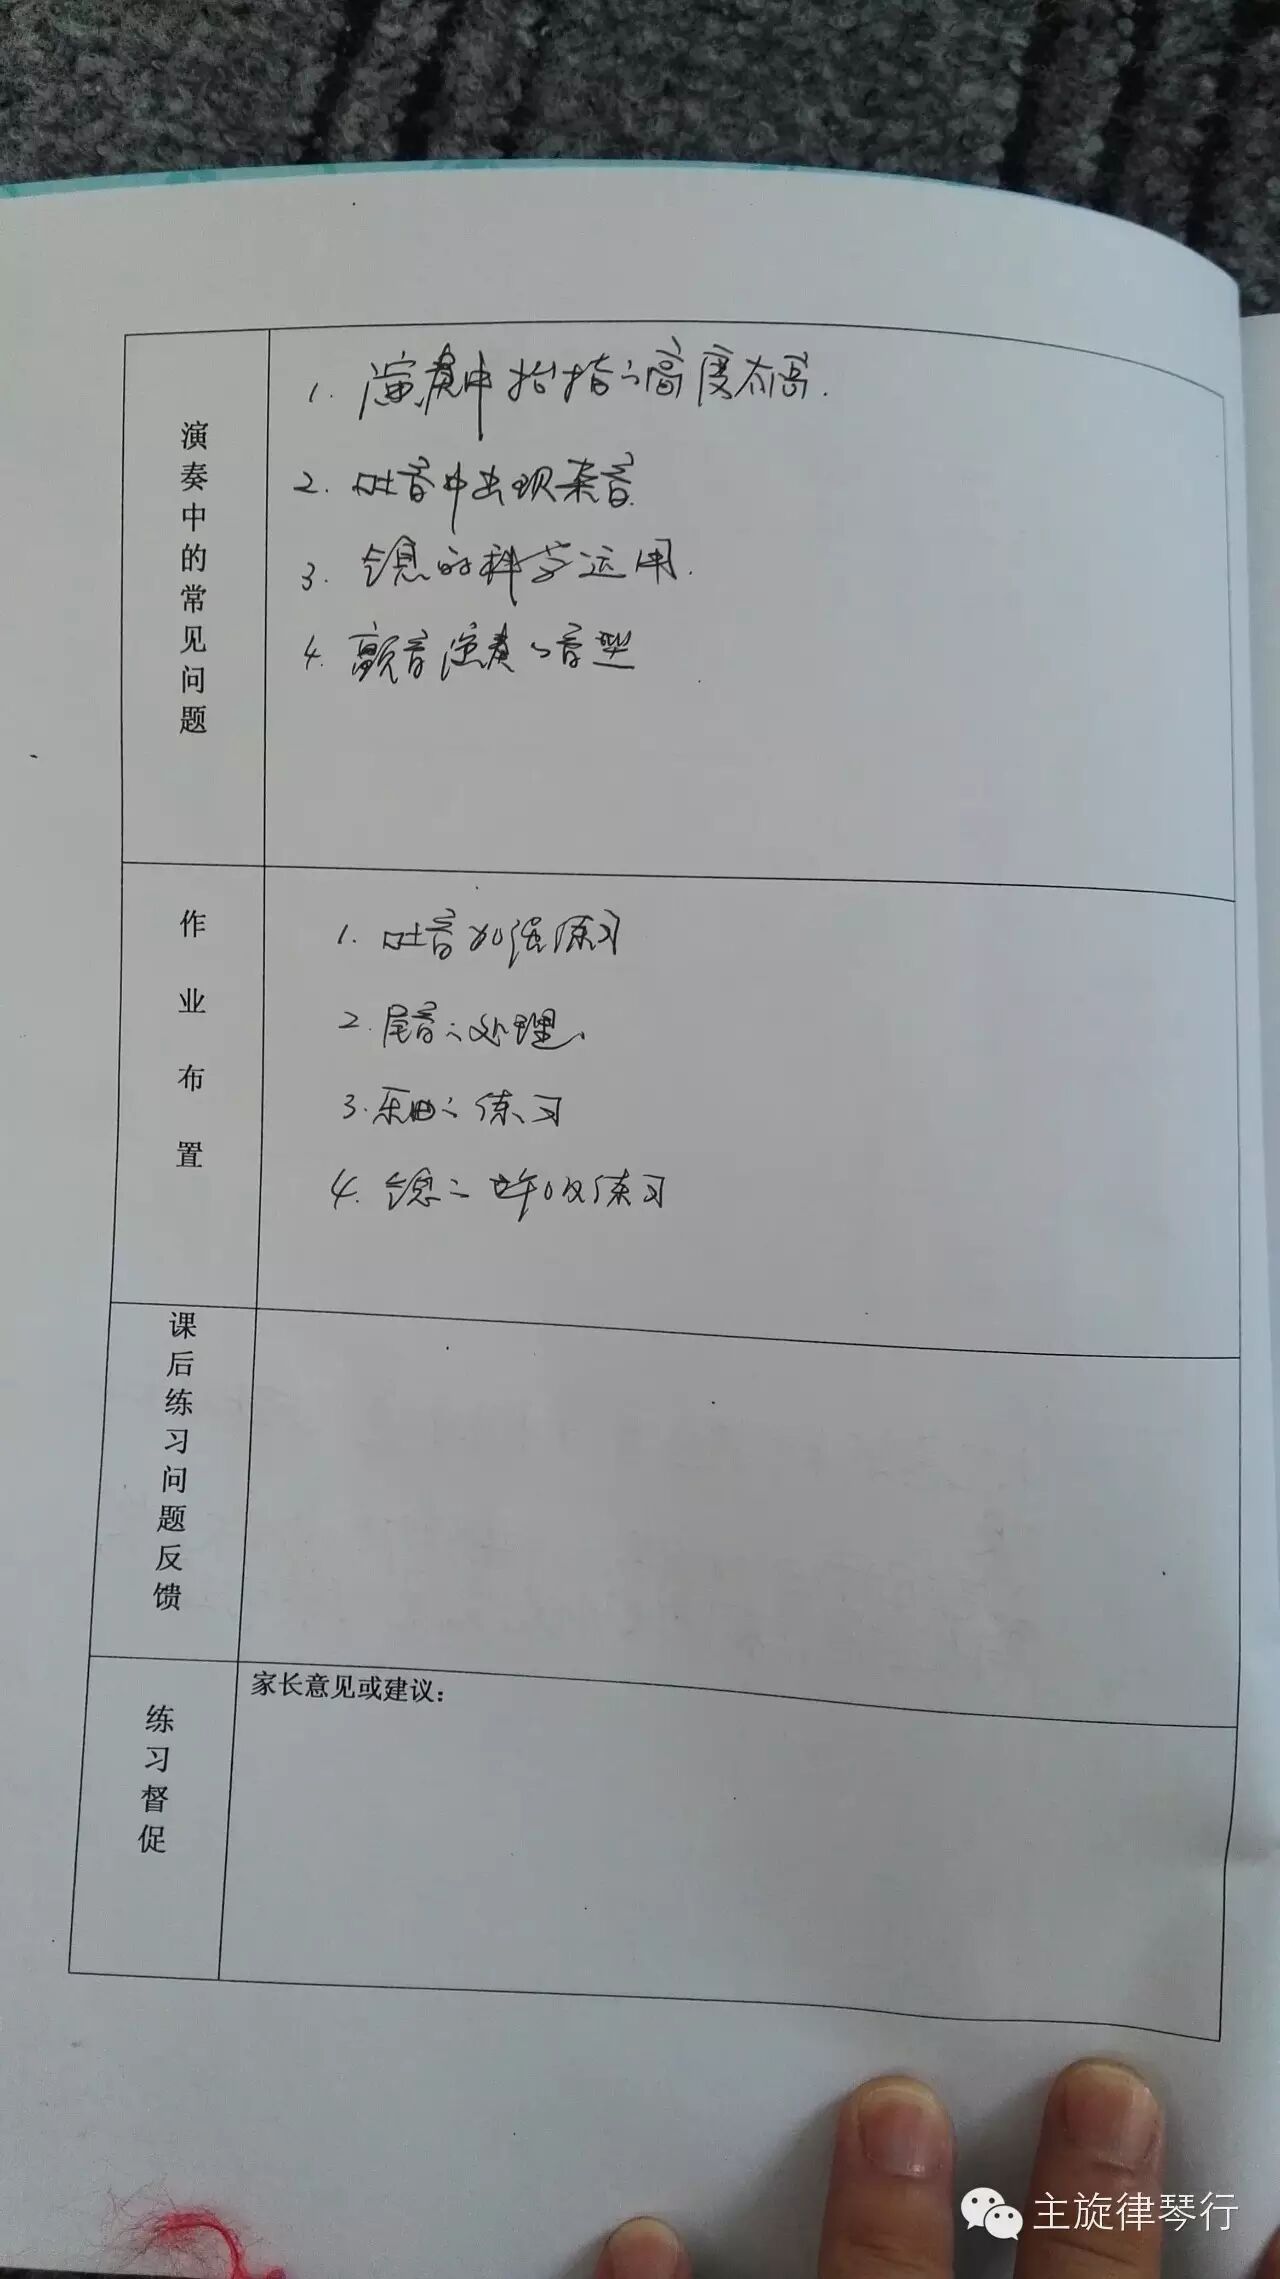 演奏中的常见问题
1. 演奏中抬指的高度太高.
2. 吐音中出现杂音.
3. 气息的科学运用.
4. 颤音演奏的音型
作业布置
1. 吐音加强练习
2. 尾音的处理.
3. 乐曲的练习
4. 气息的呼吸练习
课后练习问题反馈
练习督促
家长意见或建议：
主旋律琴行